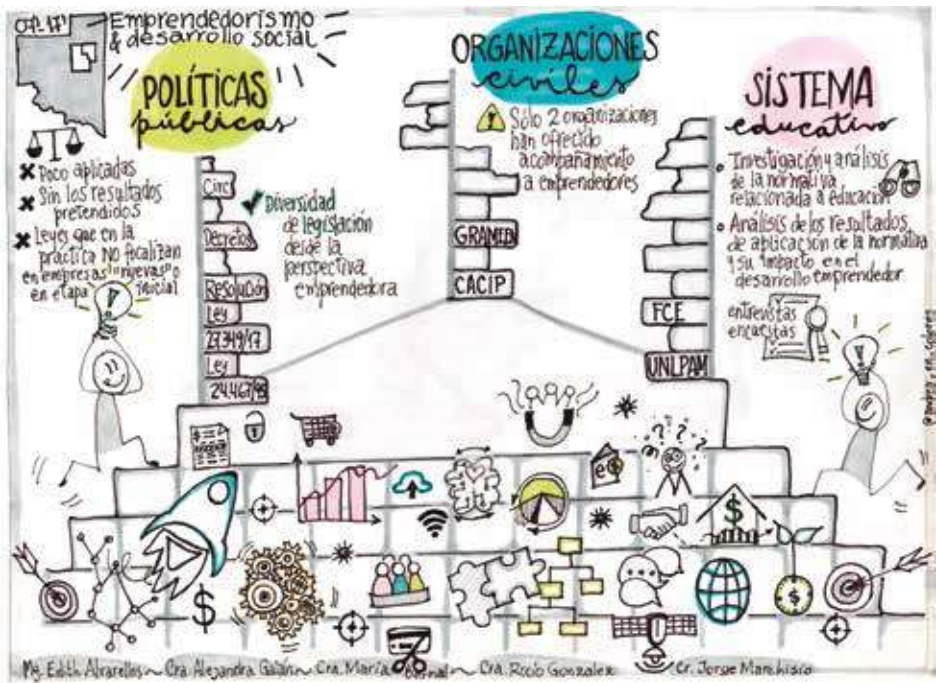 07-17
Emprendedorismo
& desarrollo social
POLÍTICAS
públicas
X Poco aplicadas
X Sin los resultados
pretendidos
X Leyes que en la
práctica NO focalizan
en empresas "nuevas" o
en etapa inicial
Circ
Decretos
Resolución
Ley
27.349/17
Ley
24.467/95
✓ Diversidad
de legislación
desde la
perspectiva
emprendedora
ORGANIZACIONES
civiles
! Sólo 2 organizaciones
han ofrecido
acompañamiento
a emprendedores
GRAMEEN
CACIP
SISTEMA
educativo
Investigación y análisis
de la normativa
relacionada a educación
Análisis de los resultados
de aplicación de la normativa
y su impacto en el
desarrollo emprendedor
entrevistas
encuestas
FCE
UNLPAM
? ? ? ?
$
$
$
Mg. Edith Alvarellos ~ Cra. Alejandra Galán ~ Cra. María ~ Cra. Rocío Gonzalez Cr. Jorge Marchisio